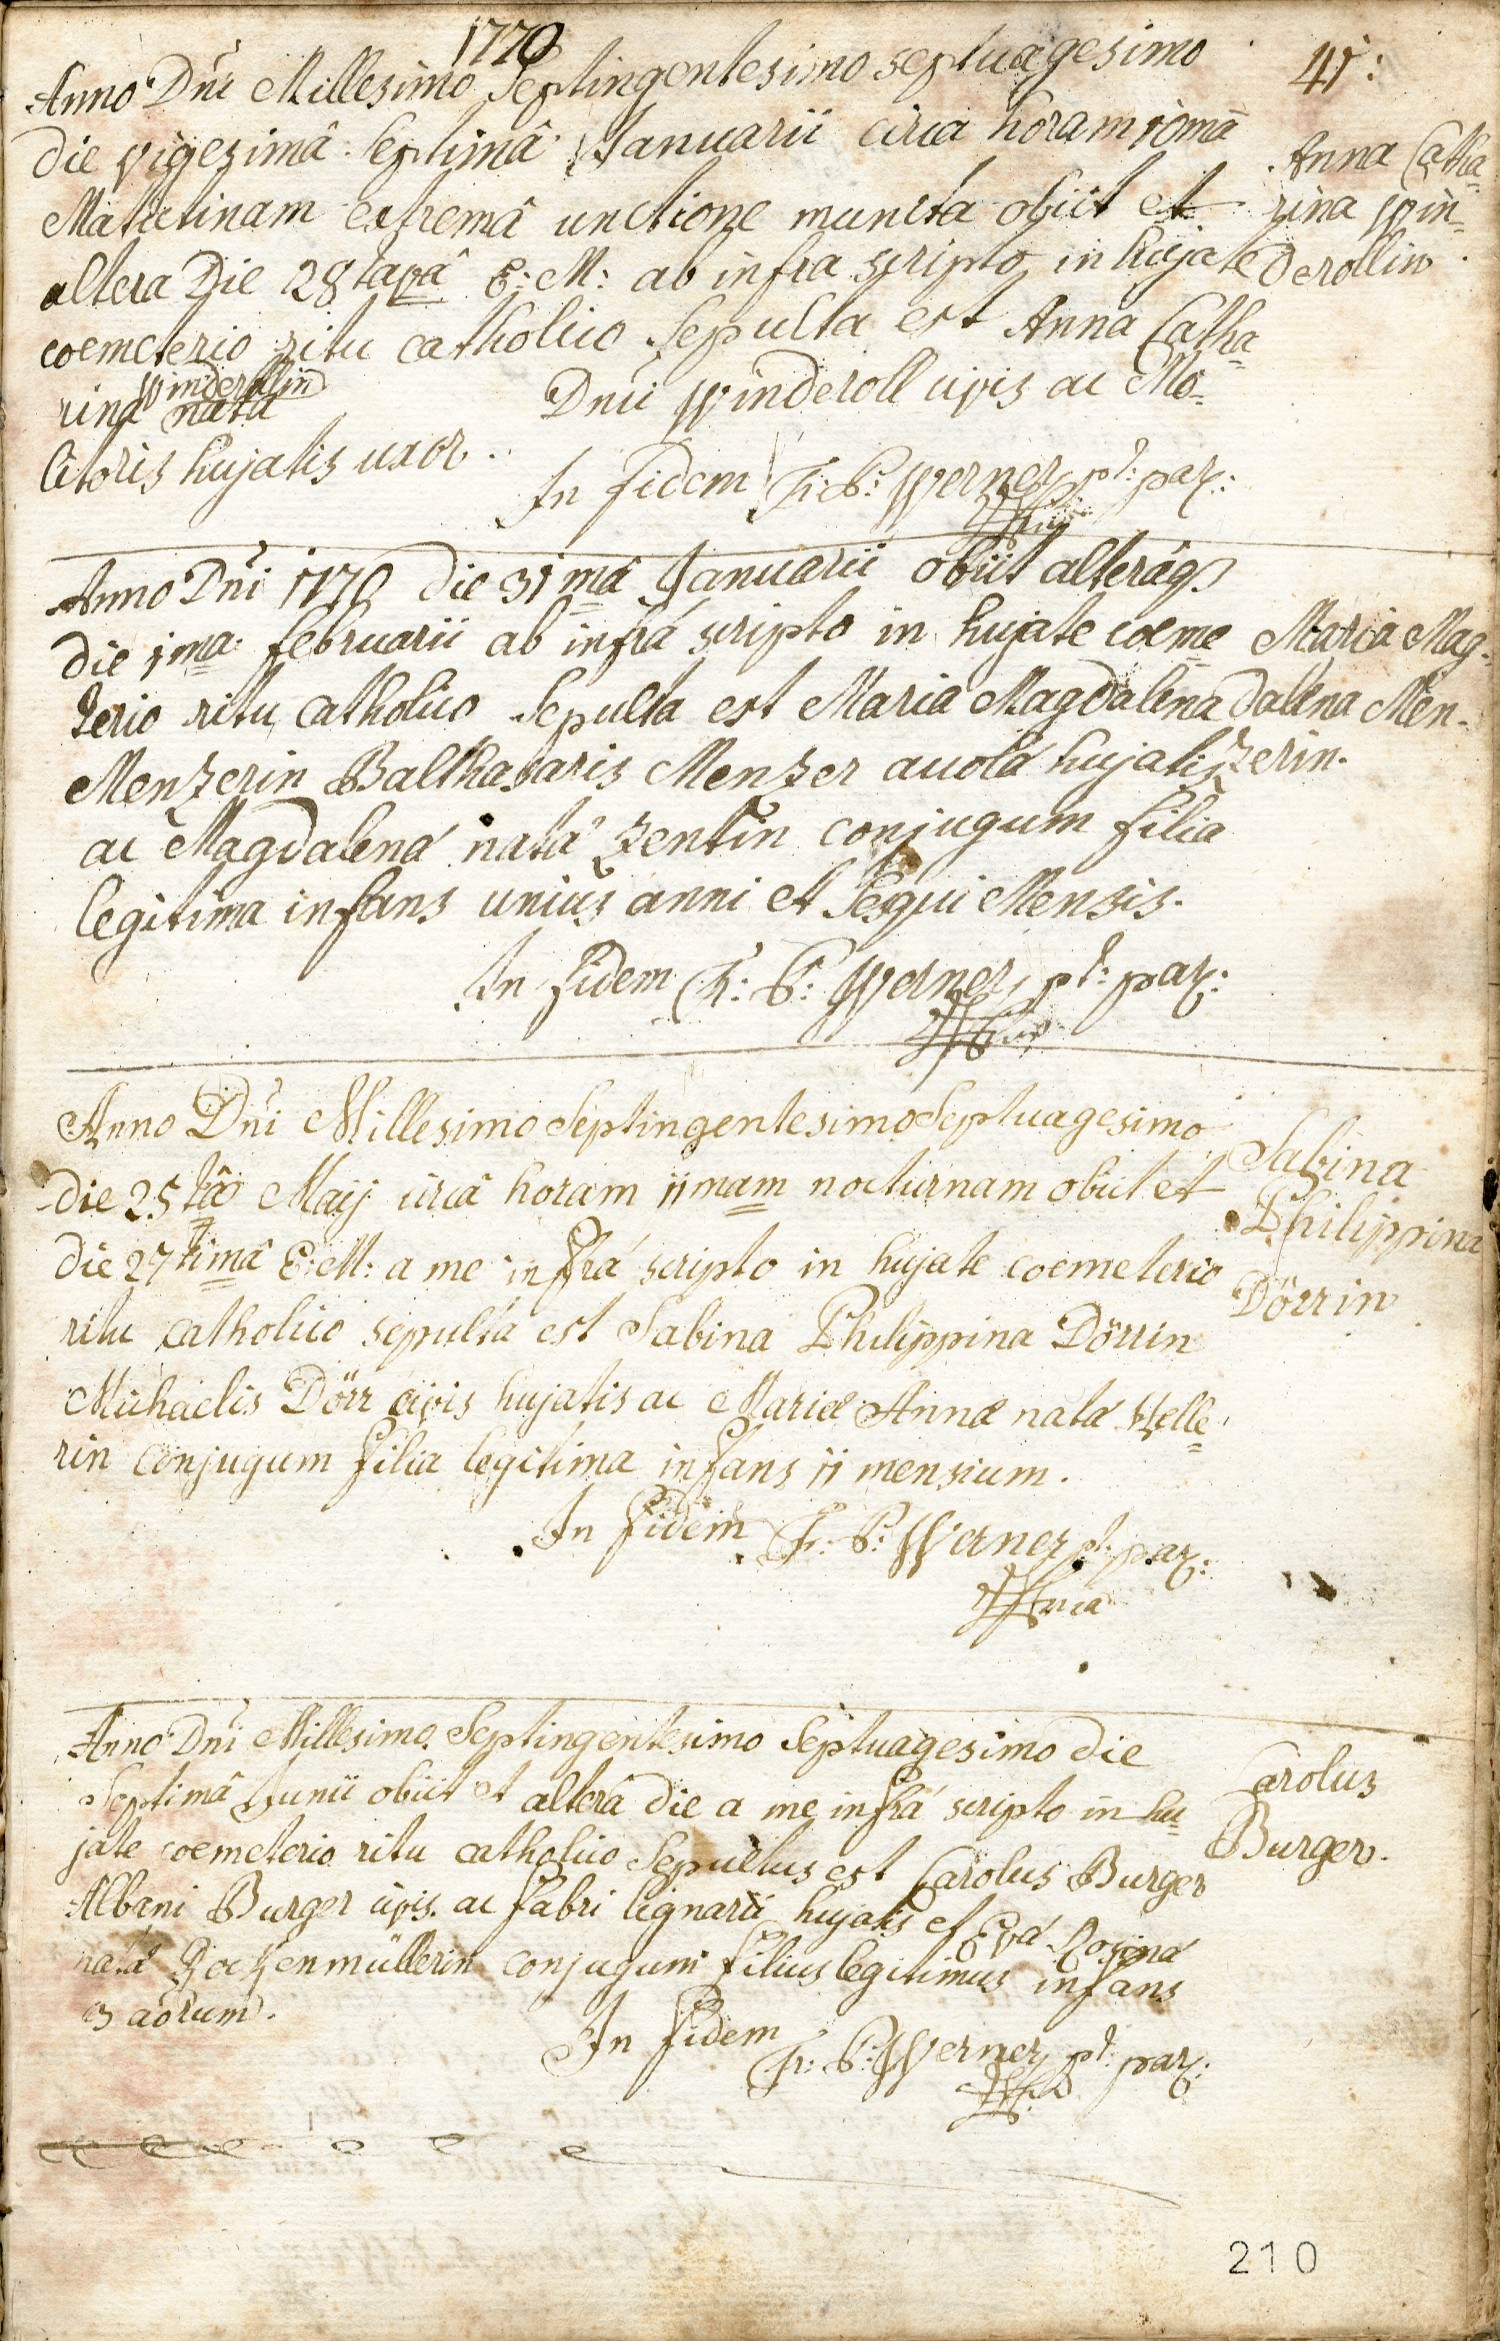 1770
41:
Anno Dnī Millesimo Septingentesimo septuagesimo
die vigesimâ Septimâ Januarii circa horam 10mā
Matutinam extremâ unctione munita obiit et
altera Die 28tavâ E: M: ab infra scripto in hujate
coemeterio ritu catholico Sepulta est Anna Catha=
rina Winderollin nata Dnii Winderoll civis ac Mo=
litoris hujatis uxor.
Anna Catha=
rina Win=
derollin
In Fidem F: P: Werner pt: par:
Anno Dnī 1770 die 31mâ Januarii obiit alterâq3
die 1ma februarii ab infrá scripto in hujate coeme
terio ritu catholico Sepulta est Maria Magdalena
Menzerin Balthasaris Menzer auola hujatis
ac Magdalená natá Zentin conjugum filia
legitima infans unius anni et Sesqui Mensis.
Maria Mag=
dalena Men=
zerin.
In Fidem F: P: Werner pt: par:
Anno Dnī Millesimo Septingentesimo Septuagesimo
die 25tâ Maij circâ horam 11mam nocturnam obiit et
die 27timâ E: M: a me infrá scripto in hujate coemeterio
ritu catholico sepulta est Sabina Philippina Dörrin
Michaelis Dörr civis hujatis ac Mariæ Annæ natá Welle=
rin conjugum filia legitima infans 11 mensium.
Sabina
Philippina
Dörrin
In Fidem F: P: Werner pt: par:
Anno Dnī Millesimo Septingentesimo Septuagesimo die
Septimâ Junii obiit et alterâ die a me infrá scripto in hu=
jate coemeterio ritu catholico Sepultus est Carolus Burger
Albani Burger civis ac fabri lignarii hujatis et Evá Rosiná
natá conjugum filius legitimus infans
3 aōrum.
Carolus
Burger.
In Fidem
F: P: Werner pt: par:
210